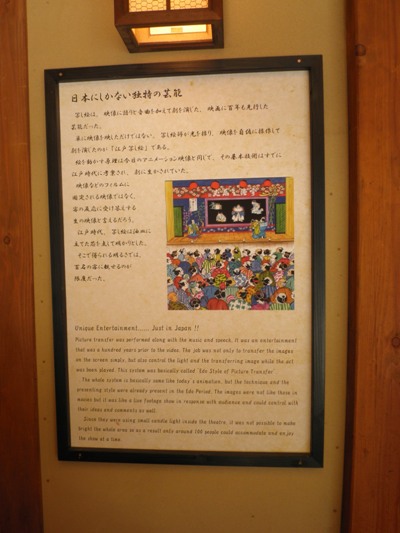 日本にしかない独特の芸能
写し絵は、映像に語りと音曲を加えて劇を演じた、映画に百年も先行した
芸能だった。
単に映像を映しただけではない。写し絵師が光を操り、映像を自値に操作して
劇を演じたのが「江戸写し絵」である。
絵を動かす原理は今日のアニメーション映像と同じで、その基本技術はすでに
江戸時代に考案され、劇に生かされていた。
映像などのフィルムに
固定される映像ではなく、
客の反応に受け答えする
生の映像と言えるだろう。
江戸時代、写し絵は油皿に
立てた芯を灯して明かりとした。
そこで得られる明るさでは、
百名の客に観せるのが
限度だった。
Unique Entertainment..... Just in Japan !!
Picture transfer was performed along with the music and speech, it was an entertainment
that was a hundred years prior to the video. The job was not only to transfer the images
on the screen simply, but also control the light and the transferring image while the act
was been played. This system was basically called 'Edo Style of Picture Transfer'
The whole system is basically same like today's animation, but the technique and the
presenting style were already present in the Edo Period. The images were not like those in
movies but it was like a live footage show in response with audience and could control with
their ideas and comments as well.
Since they were using small candle light inside the theatre, it was not possible to make
bright the whole area so as a result only around 100 people could accommodate and enjoy
the show at a time.